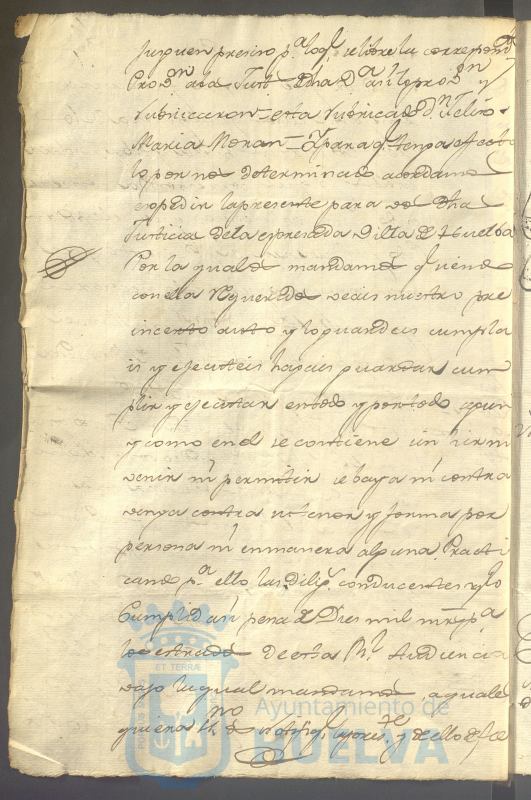 Jusguen preciso p.ª lo q.º se libre la correspond.te
Pro.on a la Just.ª de dha V.ª así lo pro.on y
rubricaron esta rubricado D.n
Maria Moran Y para q.º tenga efecto
lo por nos determinado acordamos
expedir la presente para vos dha
Justicia de la expresada Villa de Huelba
Por la qual os mandamos q.º siendo
con ella requeridos veais nuestro pre
incerto auto y lo guardeis cumpla
is y ejecuteis hagais guardar cum
plir y ejecutar en todo y por todo segun
y como en el se contiene sin ir ni
venir ni permitir se baya ni contra
venga contra su tenor y forma por
persona ni en manera alguna Practi
cando p.ª ello las dilig.s conducentes y lo
Cumplid así pena de Dies mil mrs p.ª
los estrados de esta R.l Audiencia
vajo la qual mandamos a quales
quiera ss.no os notifiq.e la pres.te y de ello de fee
ET TERRÆ
Ayuntamiento de
HUELVA